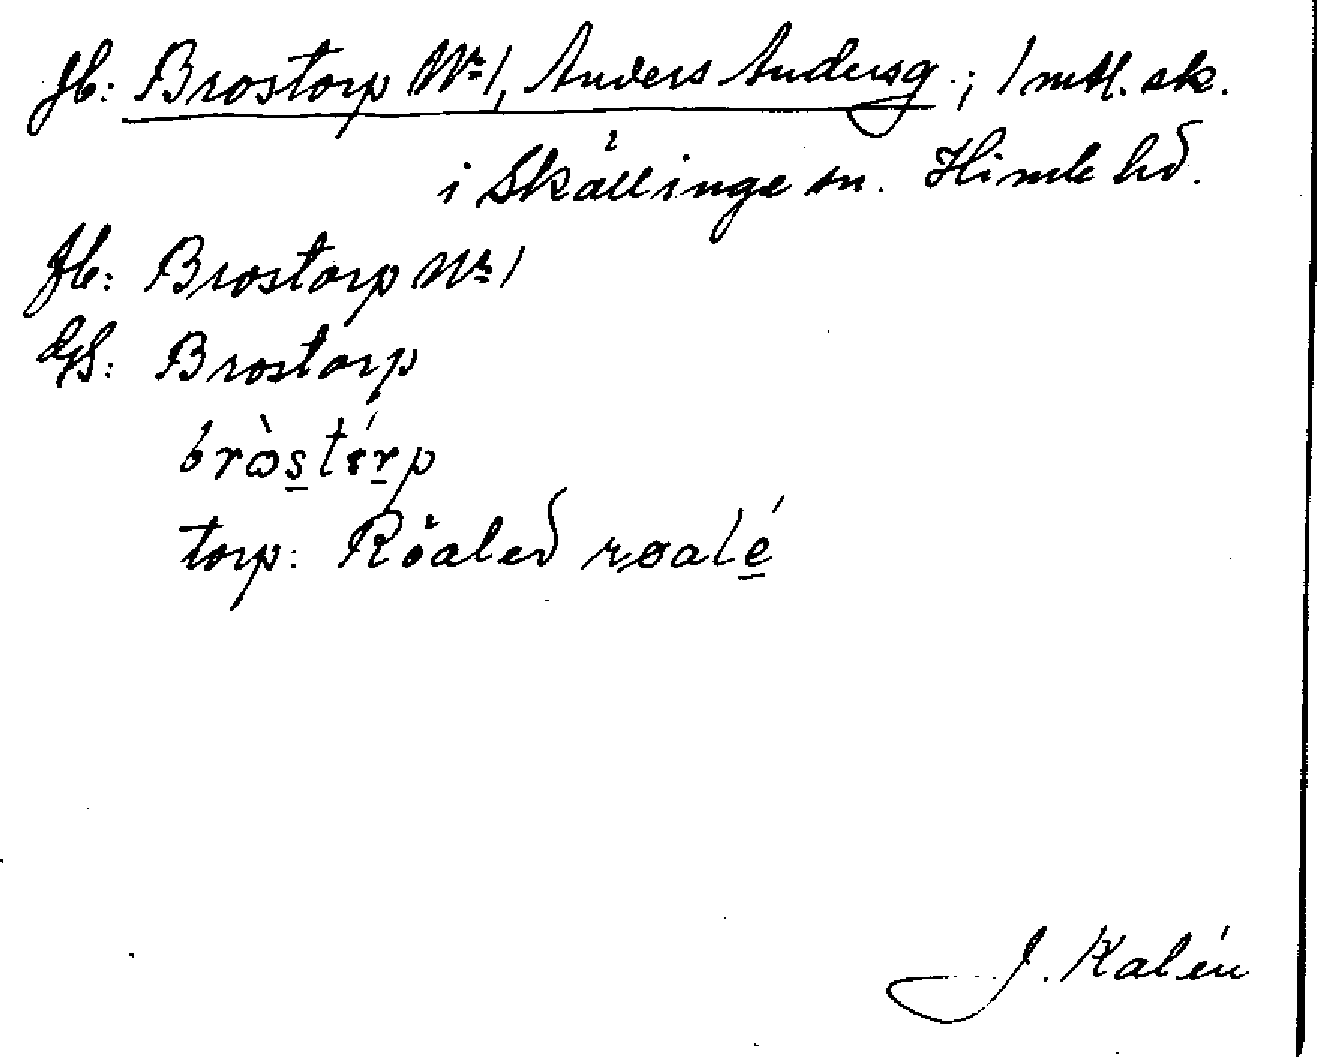 Jb: Brostorp No 1, Anders Andersg.; 1 mtl. sk.
i Skällinge sn. Himle hd.
Jb: Brostorp No 1
GS: Brostorp
bròstɛ́rp
torp: Röaled røalé
J. Kalén